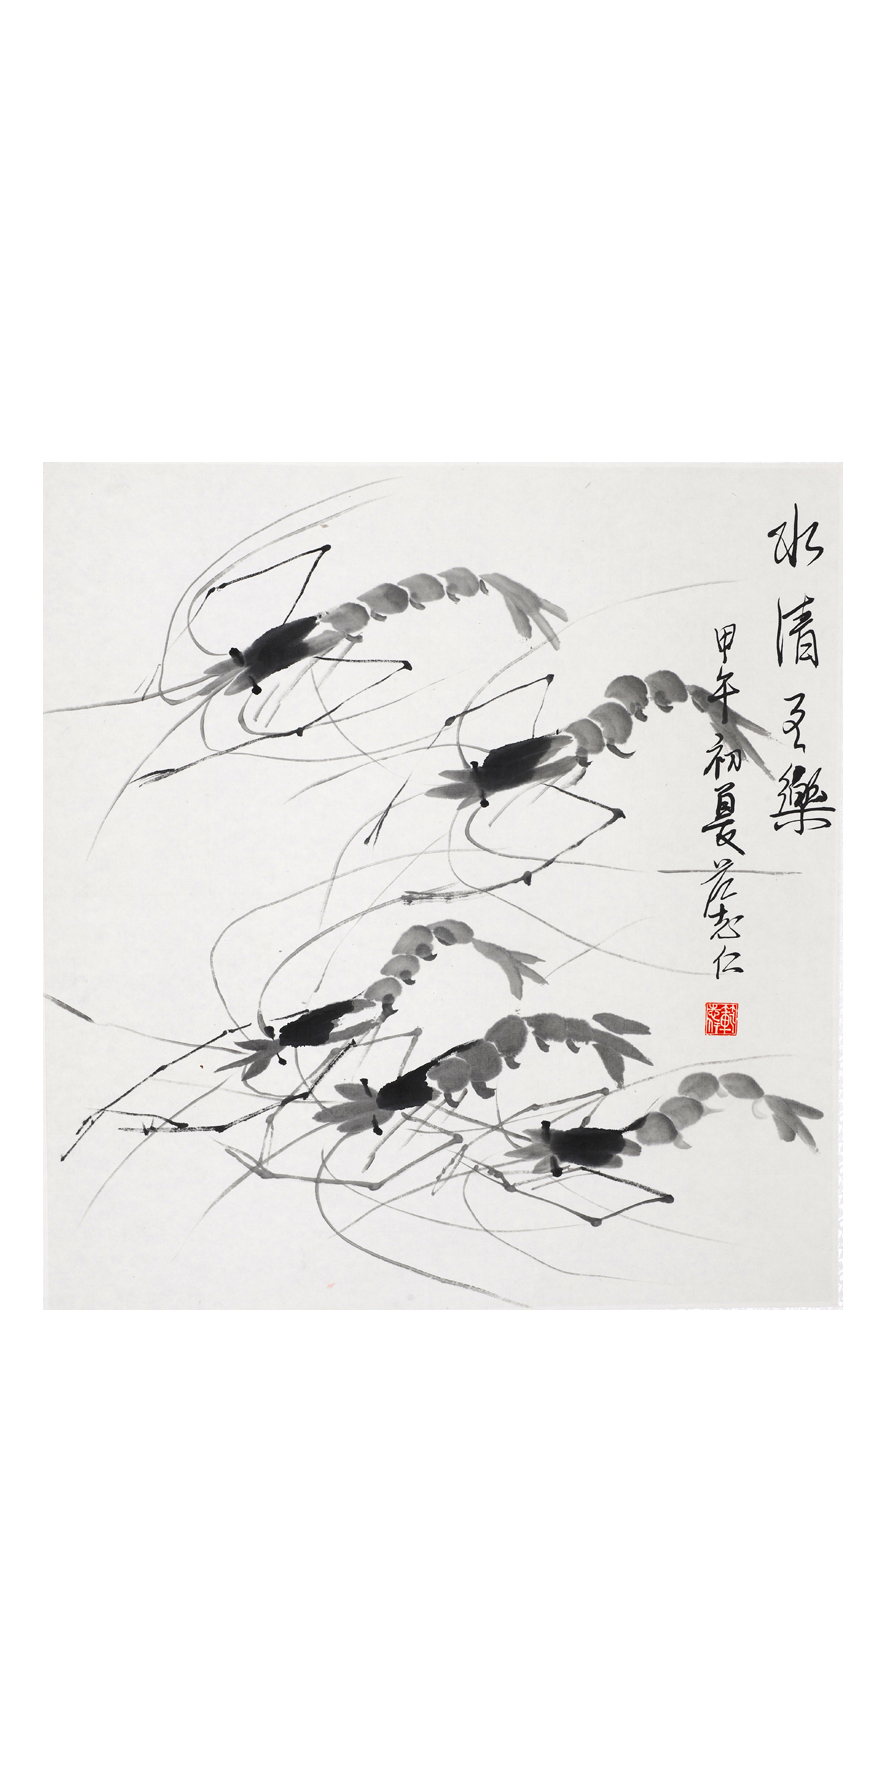 水清至樂
甲午初夏范志仁